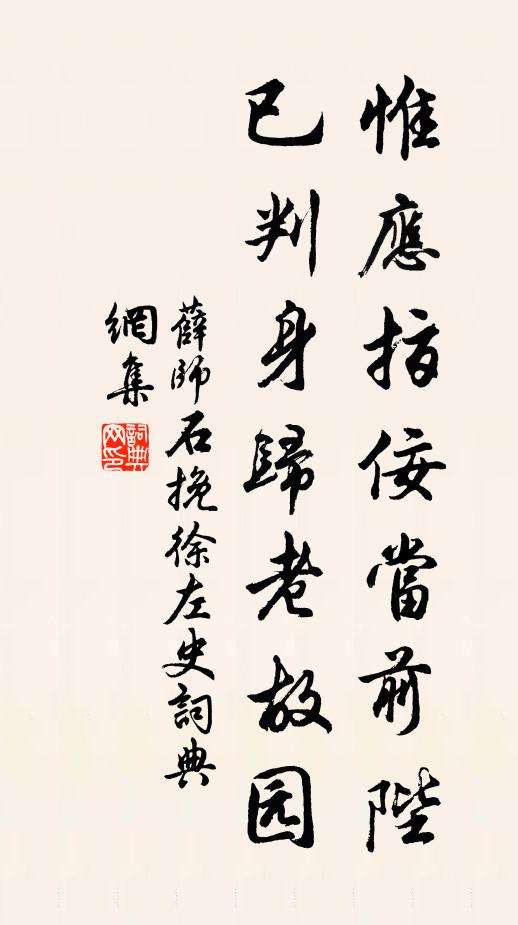 惟應指佞當前陛
已判身歸老故园
薛師石挽徐左史詞典
網集
詞典
网印